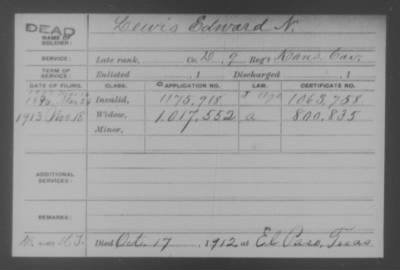 DEAD
NAME OF SOLDIER:
Lewis Edward N.
SERVICE:
Late rank, Co. D, 9 Reg't Kans. Cav.
TERM OF SERVICE:
Enlisted , 1 Discharged , 1
DATE OF FILING. CLASS. APPLICATION NO. LAW. CERTIFICATE NO.
Invalid, 1175,918 1063,758
1913 Nov. 15 Widow, 1.017,552 a 800,835
Minor,
ADDITIONAL SERVICES:
REMARKS:
Died Oct. 17, 1912 at El Paso, Texas